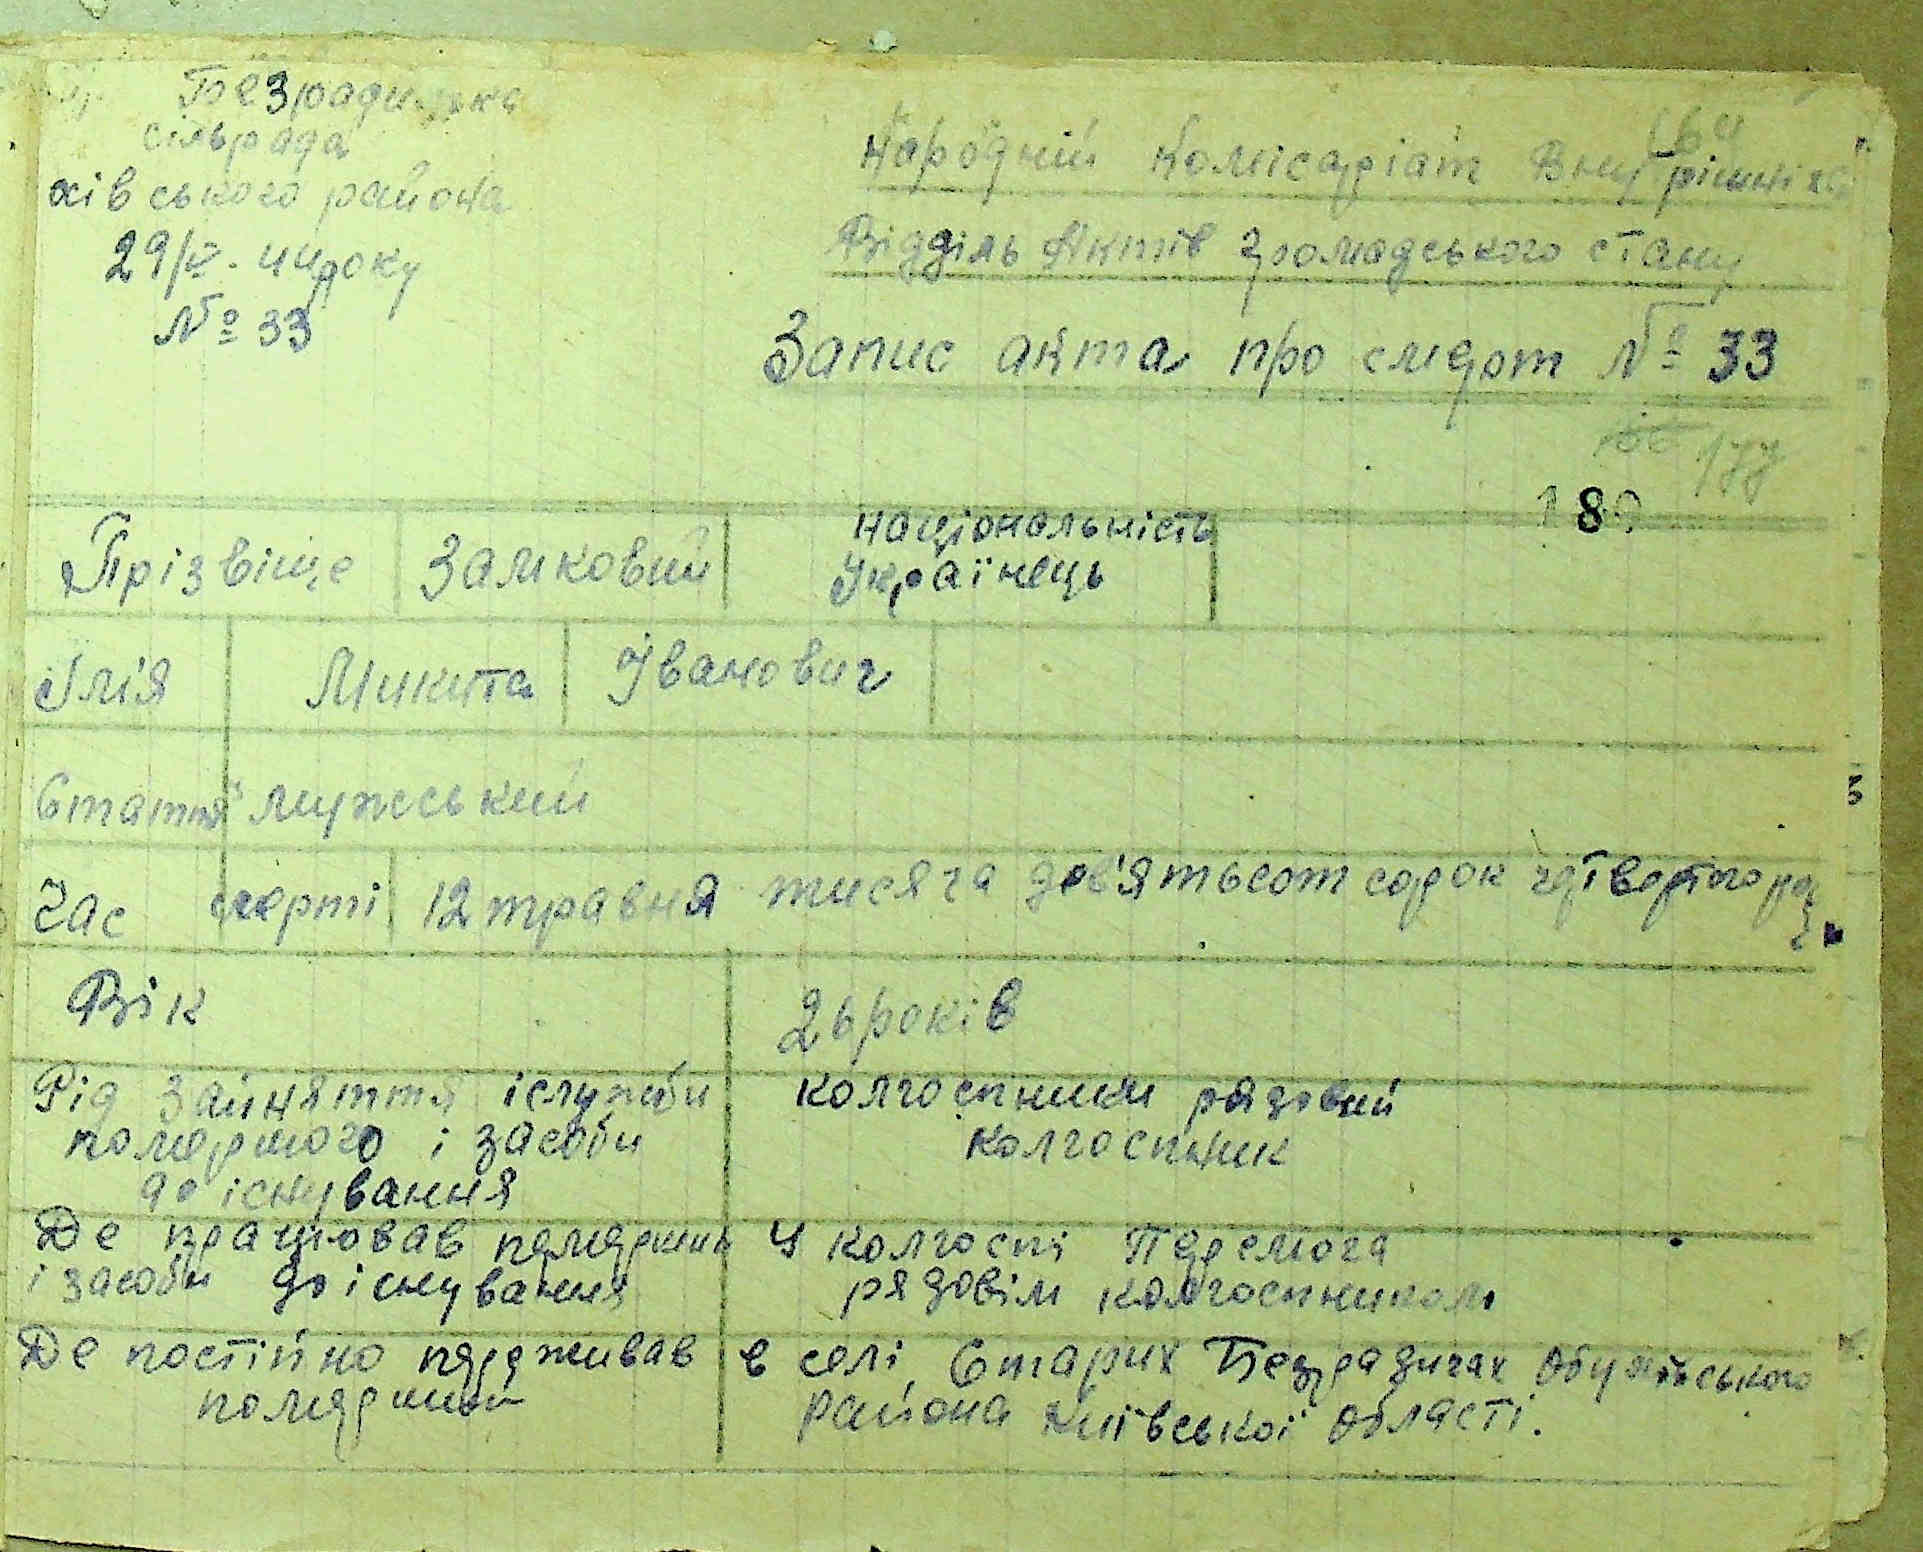 Безрадицька
сільрада
хівського района
29/V. 44 року
№ 33
Народній Комісаріат Внутрішніх
Відділь Актів Громадського стану
Запис акта про смерт № 33
177
189
Прізвіще Замковий національність
Українець
Імія Микита Іванович
Стаття мужський
Час смерті 12 травня тисяча дев'ятьсот сорок чтівертого року
Вік 26 років
Рід зайняття і служби колгоспник рядовий
помершого і засоби колгоспник
до існування
Де працював померший У колгоспі Перемога
і засоби до існування рядовім колгоспником
Де постійно перживав в селі Старих Безрадичах Обухівського
померший района Київської області.